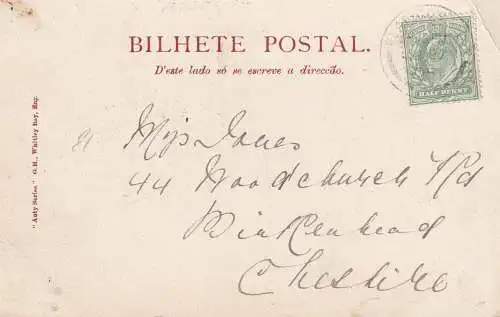 BILHETE POSTAL.
D'este lado só se escreve a direcção.
HALF PENNY
"Auty Series" G.H., Whitley Bay, Eng.
Miss Jones
44 Woodchurch Rd
Birkenhead
Cheshire